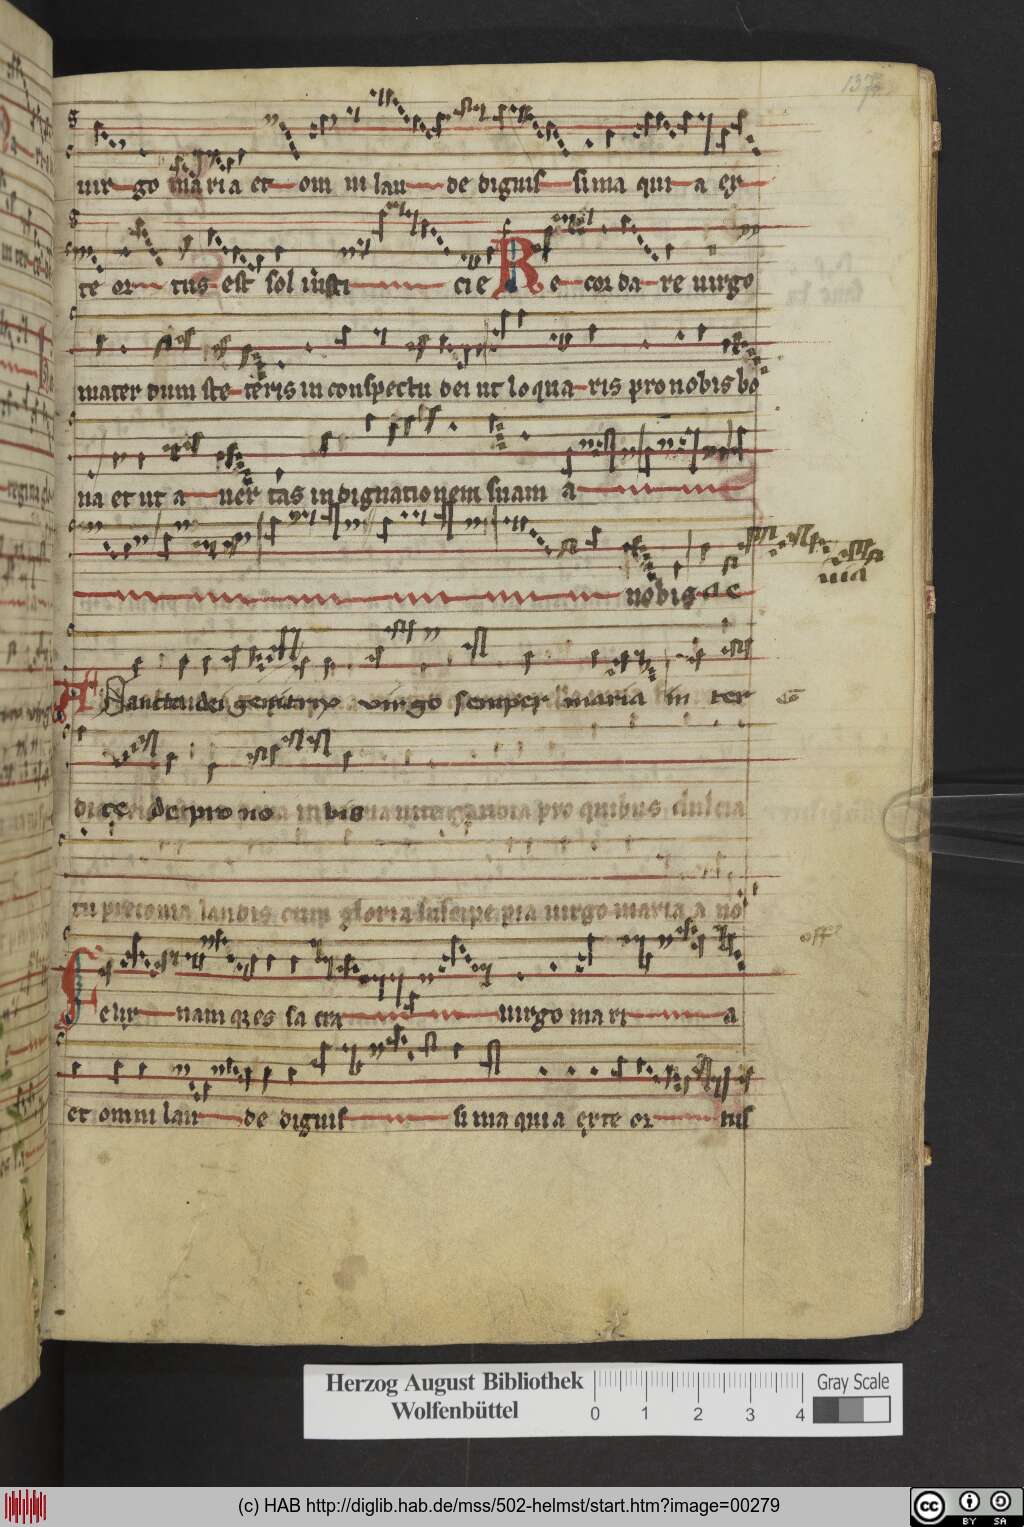 137
uir go maria et om ni lau de dignis sima qui a ex
te or tus est sol iusti cie Re cor da re uirgo
mater dum ste teris in conspectu dei ut lo qua ris pro nobis bo
na et ut a uer tas indignationem suam a
nobis ae uia
Sancta dei genitrix virgo semper maria in ter
ce de pro no bis
gaudia pro quibus dulcia
tu preconia laudis cum gloria suscipe pia uirgo maria a no
off
Felix nam qes sa cra uirgo mari a
et omni lau de dignis sima quia ex te or tus
Herzog August Bibliothek
Wolfenbüttel
0 1 2 3 4
Gray Scale
(c) HAB http://diglib.hab.de/mss/502-helmst/start.htm?image=00279
cc BY SA